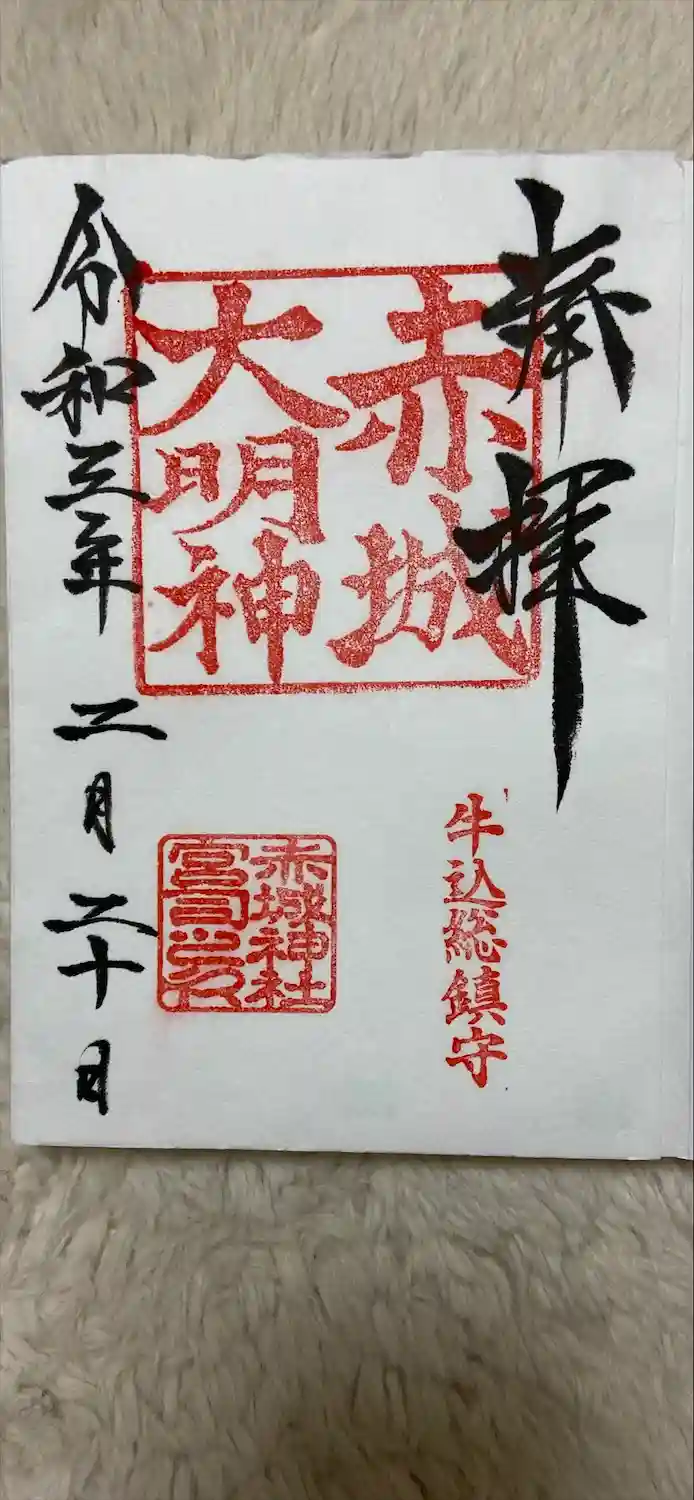 奉拝
赤城
大明神
牛込総鎮守
赤城神社
宮司之印
令和三年二月二十日